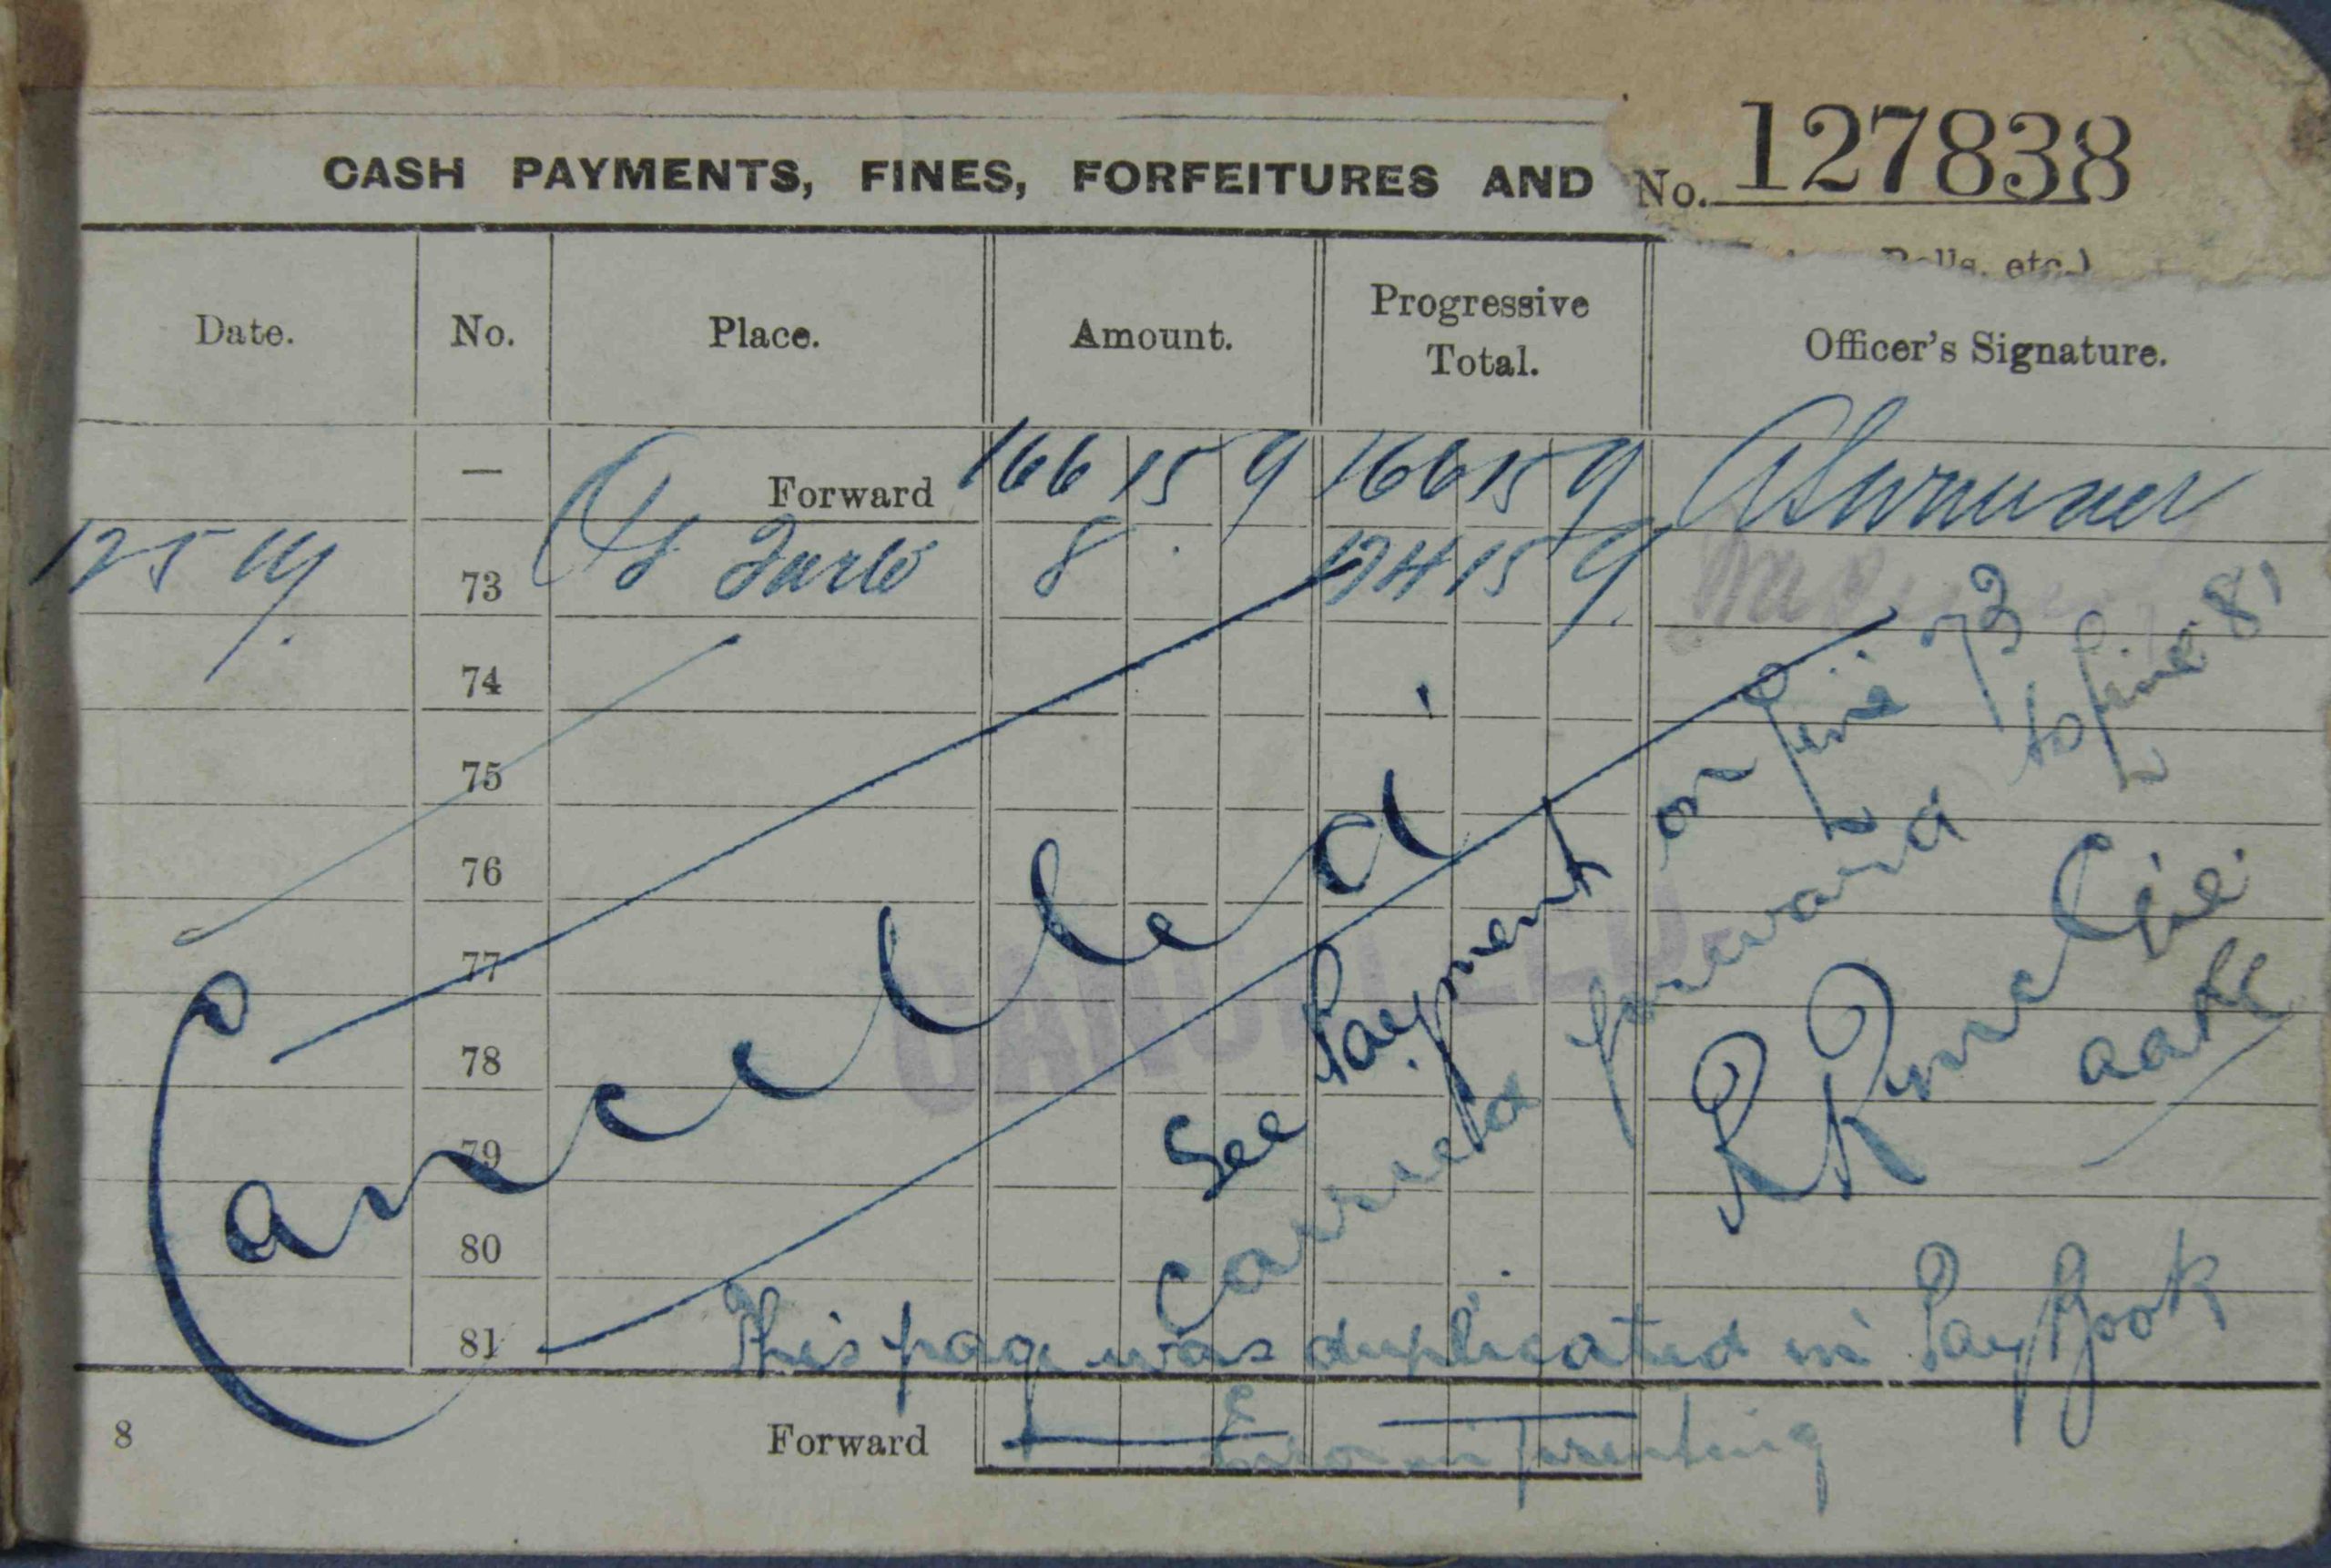 CASH PAYMENTS, FINES, FORFEITURES AND
No. 127838
Rolls, etc.)
Date. No. Place. Amount. Progressive Total. Officer's Signature.
— Forward 166 15 9 166 15 9
12 5 19 73 8 174 15 9
74
75
76
77
78
79
80
81
Cancelled
CANCELLED.
See Payment on line 73
carried forward to line 81
This page was duplicated in Pay Book
Error in printing
8 Forward